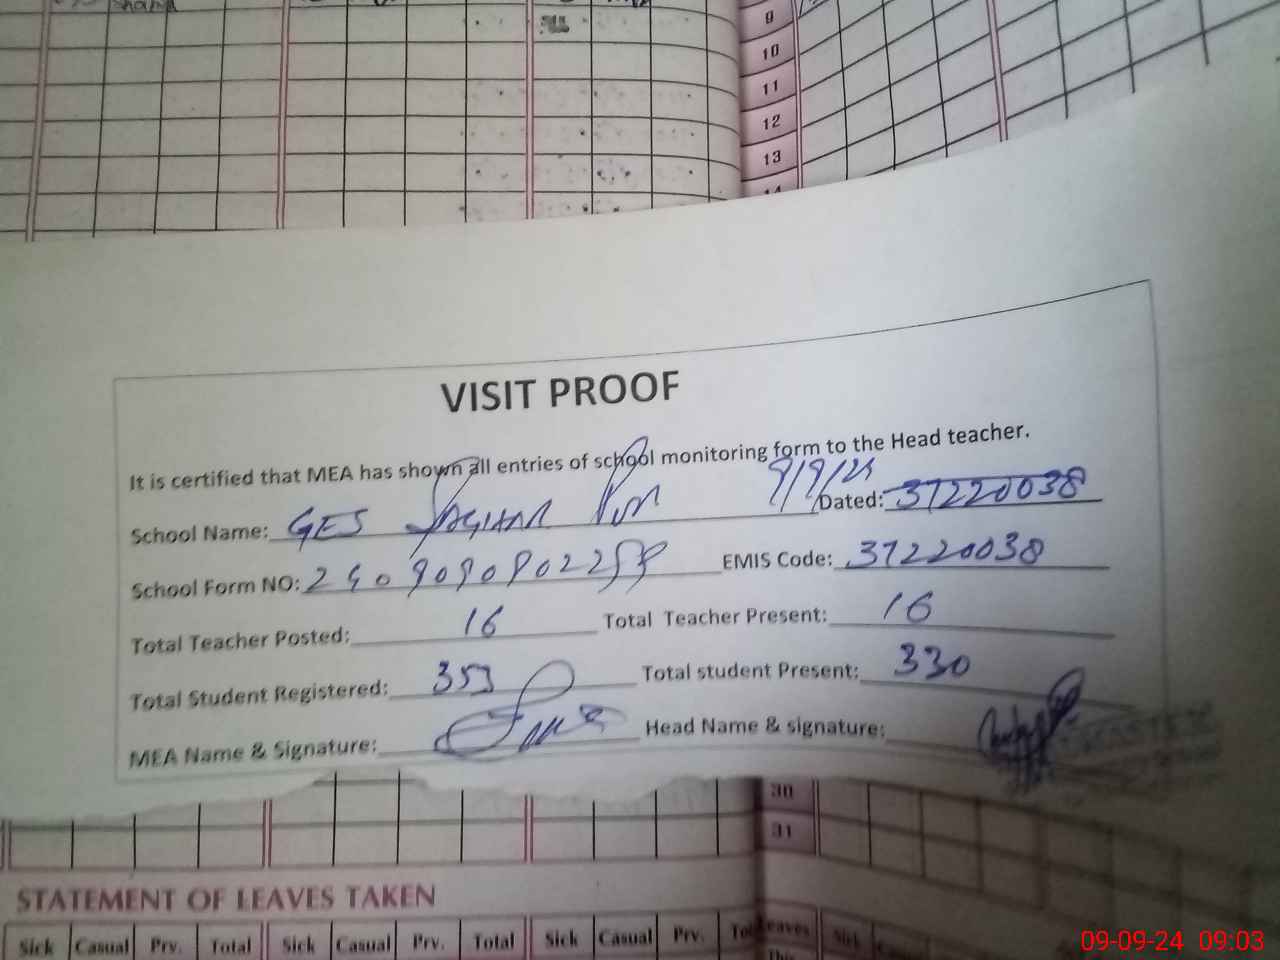 9
10
11
12
13
VISIT PROOF
It is certified that MEA has shown all entries of school monitoring form to the Head teacher.
School Name: GES Dated: 37220038
9/9/24
School Form NO: EMIS Code: 37220038
Total Teacher Posted: 16 Total Teacher Present: 16
Total Student Registered: 353 Total student Present: 330
MEA Name & Signature: Head Name & signature:
30
31
STATEMENT OF LEAVES TAKEN
Sick Casual Prv. Total Sick Casual Prv. Total Sick Casual Prv. Leaves
09-09-24 09:03